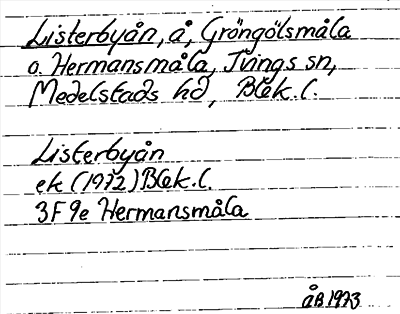 Listerbyån, å, Gröngölsmåla
o. Hermansmåla, Tvings sn,
Medelstads hd, Blek. l.
Listerbyån
ek (1972) Blek. l.
3F 9e Hermansmåla
ÅB 1973